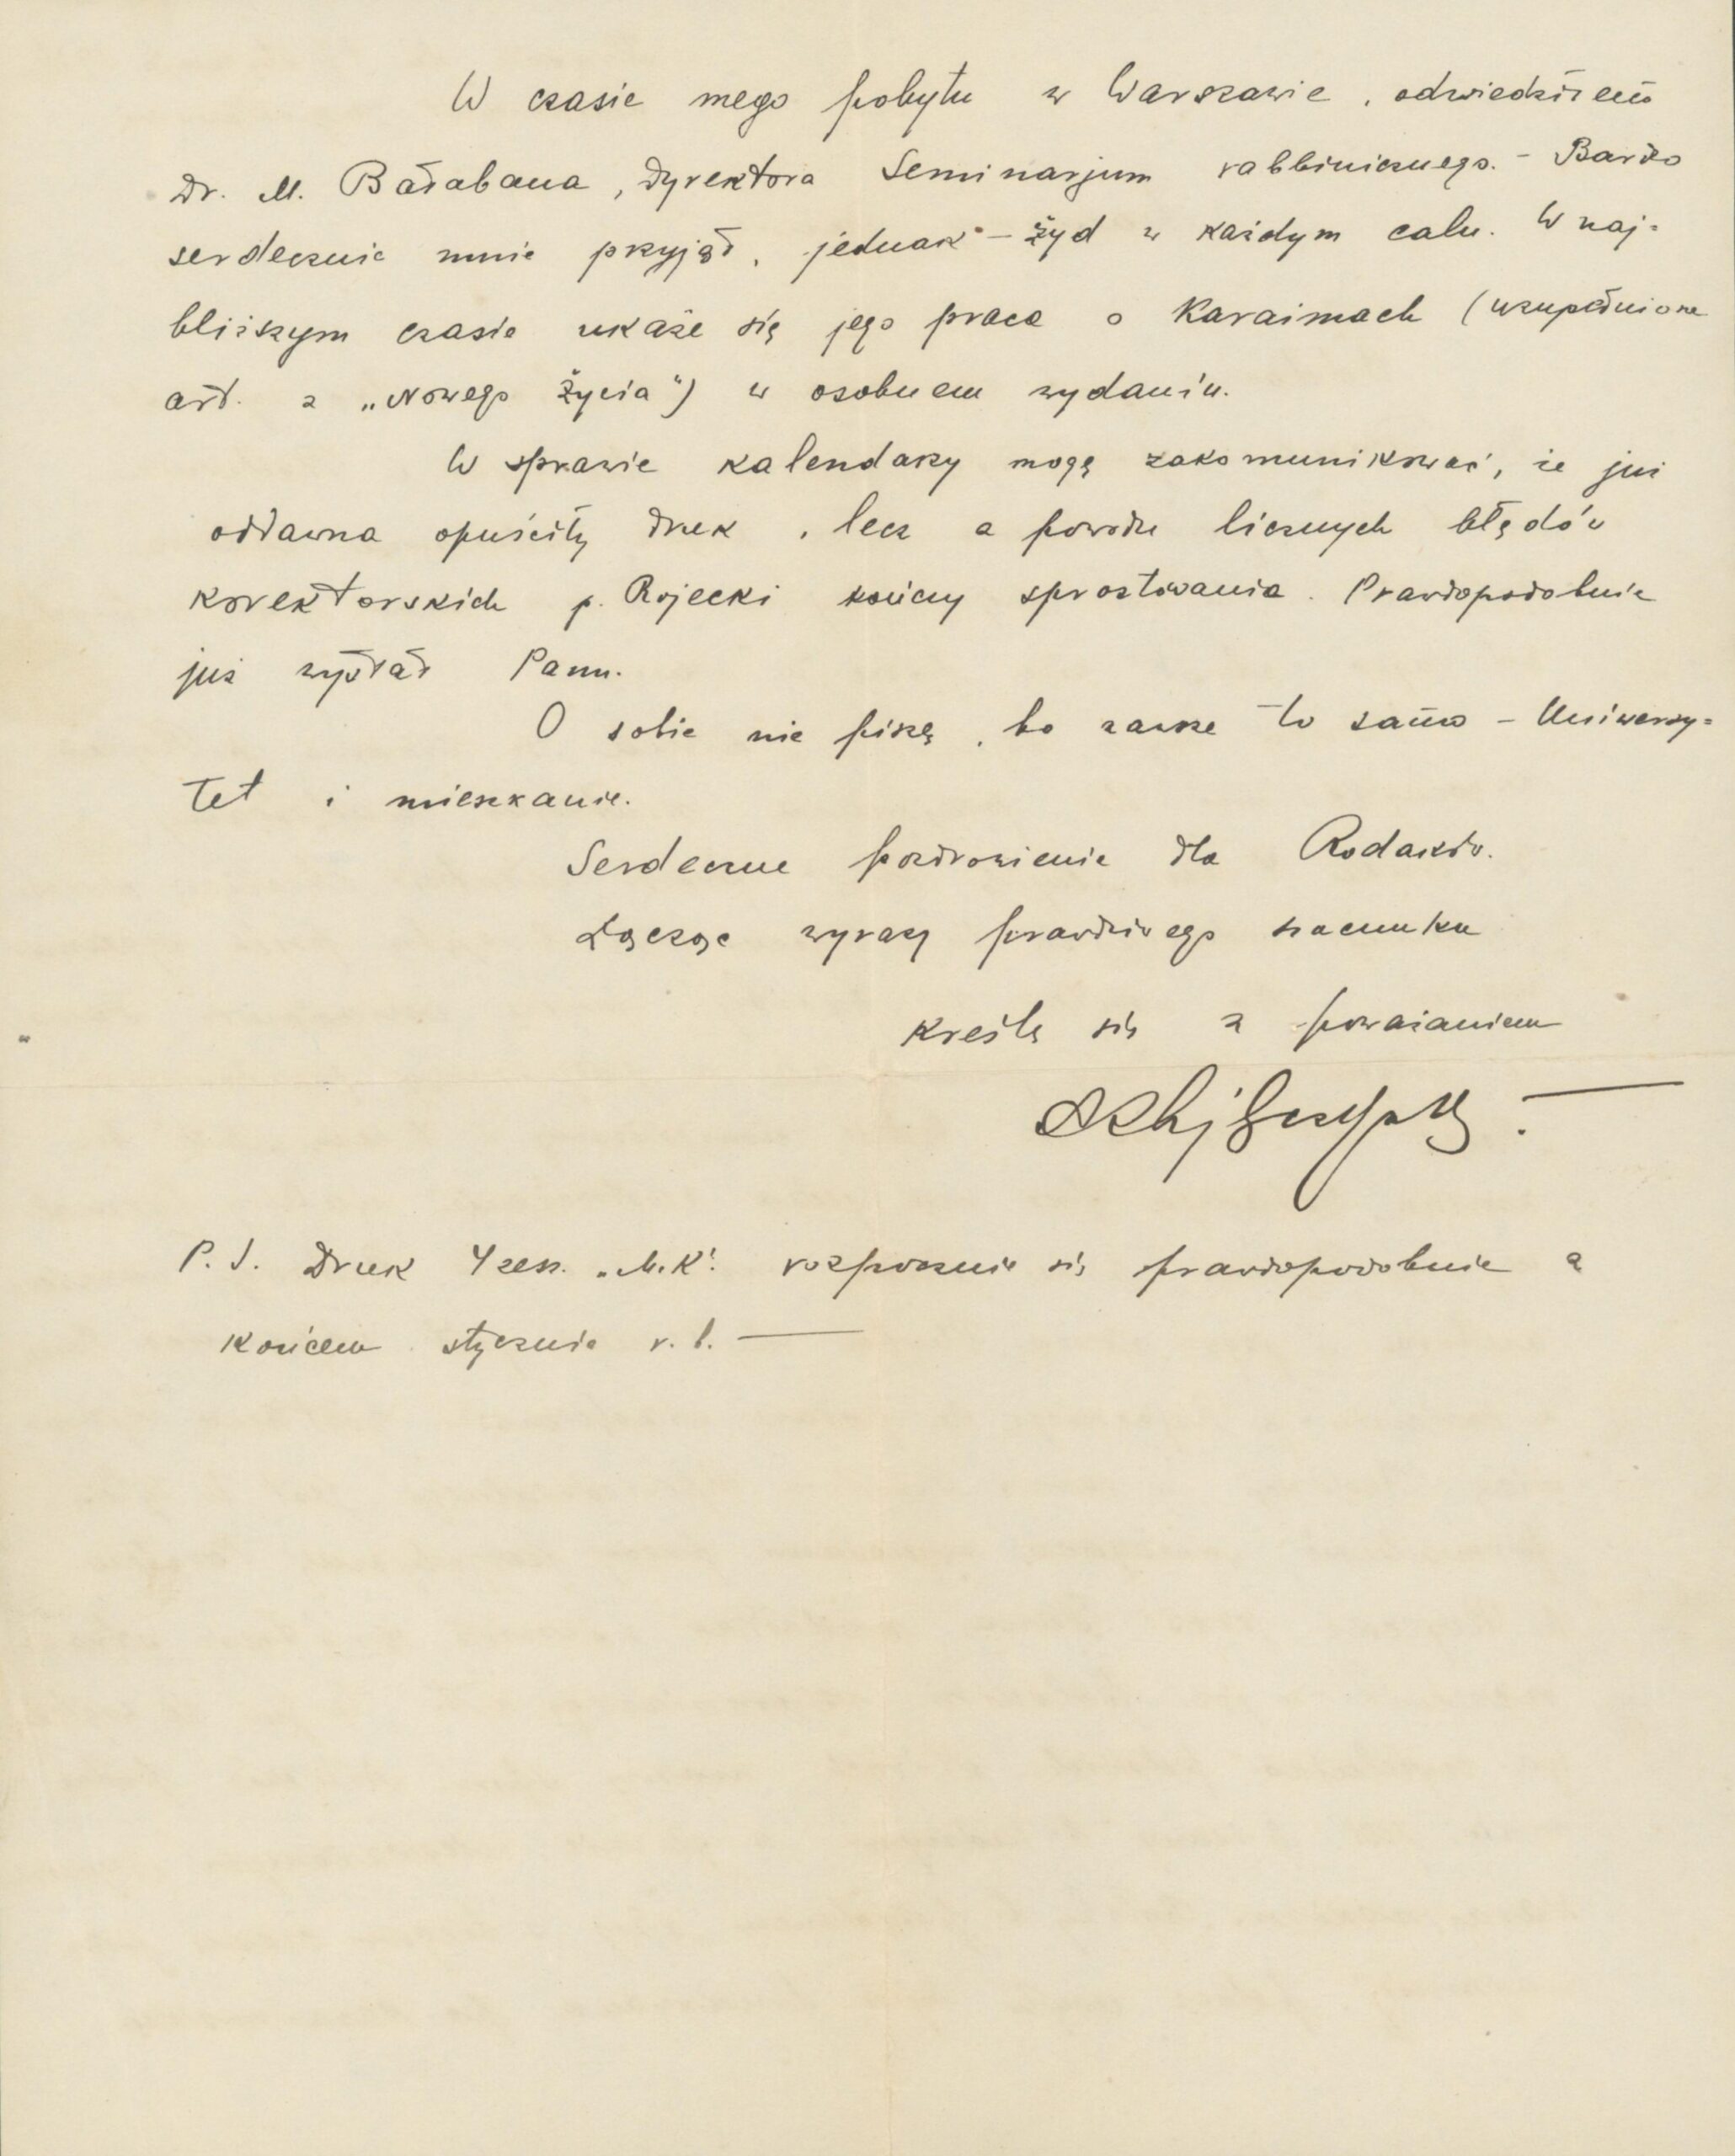 W czasie mego pobytu w Warszawie, odwiedziłem
Dr. M. Bałabana, dyrektora Seminarjum rabbinicznego. - Bardzo
serdecznie mnie przyjął, jednak - żyd w każdym calu. W naj=
bliższym czasie ukaże się jego praca o Karaimach (uzupełnione
art. z „Nowego Życia") w osobnem wydaniu.
W sprawie kalendarzy mogę zakomunikować, że już
oddawna opuściły druk, lecz z powodu licznych błędów
korektorskich p. Rojecki kończy sprostowania. Prawdopodobnie
już wysłał Panu.
O sobie nie piszę, bo zawsze to samo - Uniwersy=
tet i mieszkanie.
Serdeczne pozdrowienie dla Rodaków.
Łącząc wyrazy prawdziwego szacunku
kreślę się z poważaniem
P.S. Druk 4 zesz. „M.K." rozpocznie się prawdopodobnie z
końcem stycznia r. b. —